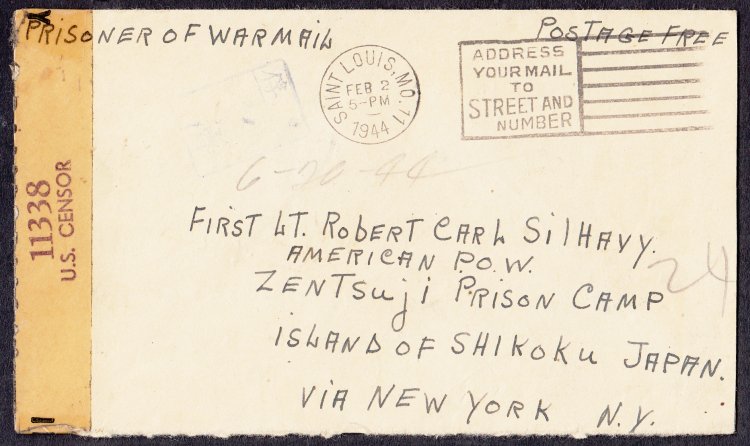 PRISONER OF WAR MAIL
POSTAGE FREE
SAINT LOUIS, MO. 11
FEB 2
5-PM
1944
ADDRESS
YOUR MAIL
TO
STREET AND
NUMBER
11338
U.S. CENSOR
6-20-44
FIRST LT. ROBERT CARL SILHAVY.
AMERICAN P.O.W.
24
ZENTSUJI PRISON CAMP
ISLAND OF SHIKOKU JAPAN.
VIA NEW YORK N.Y.